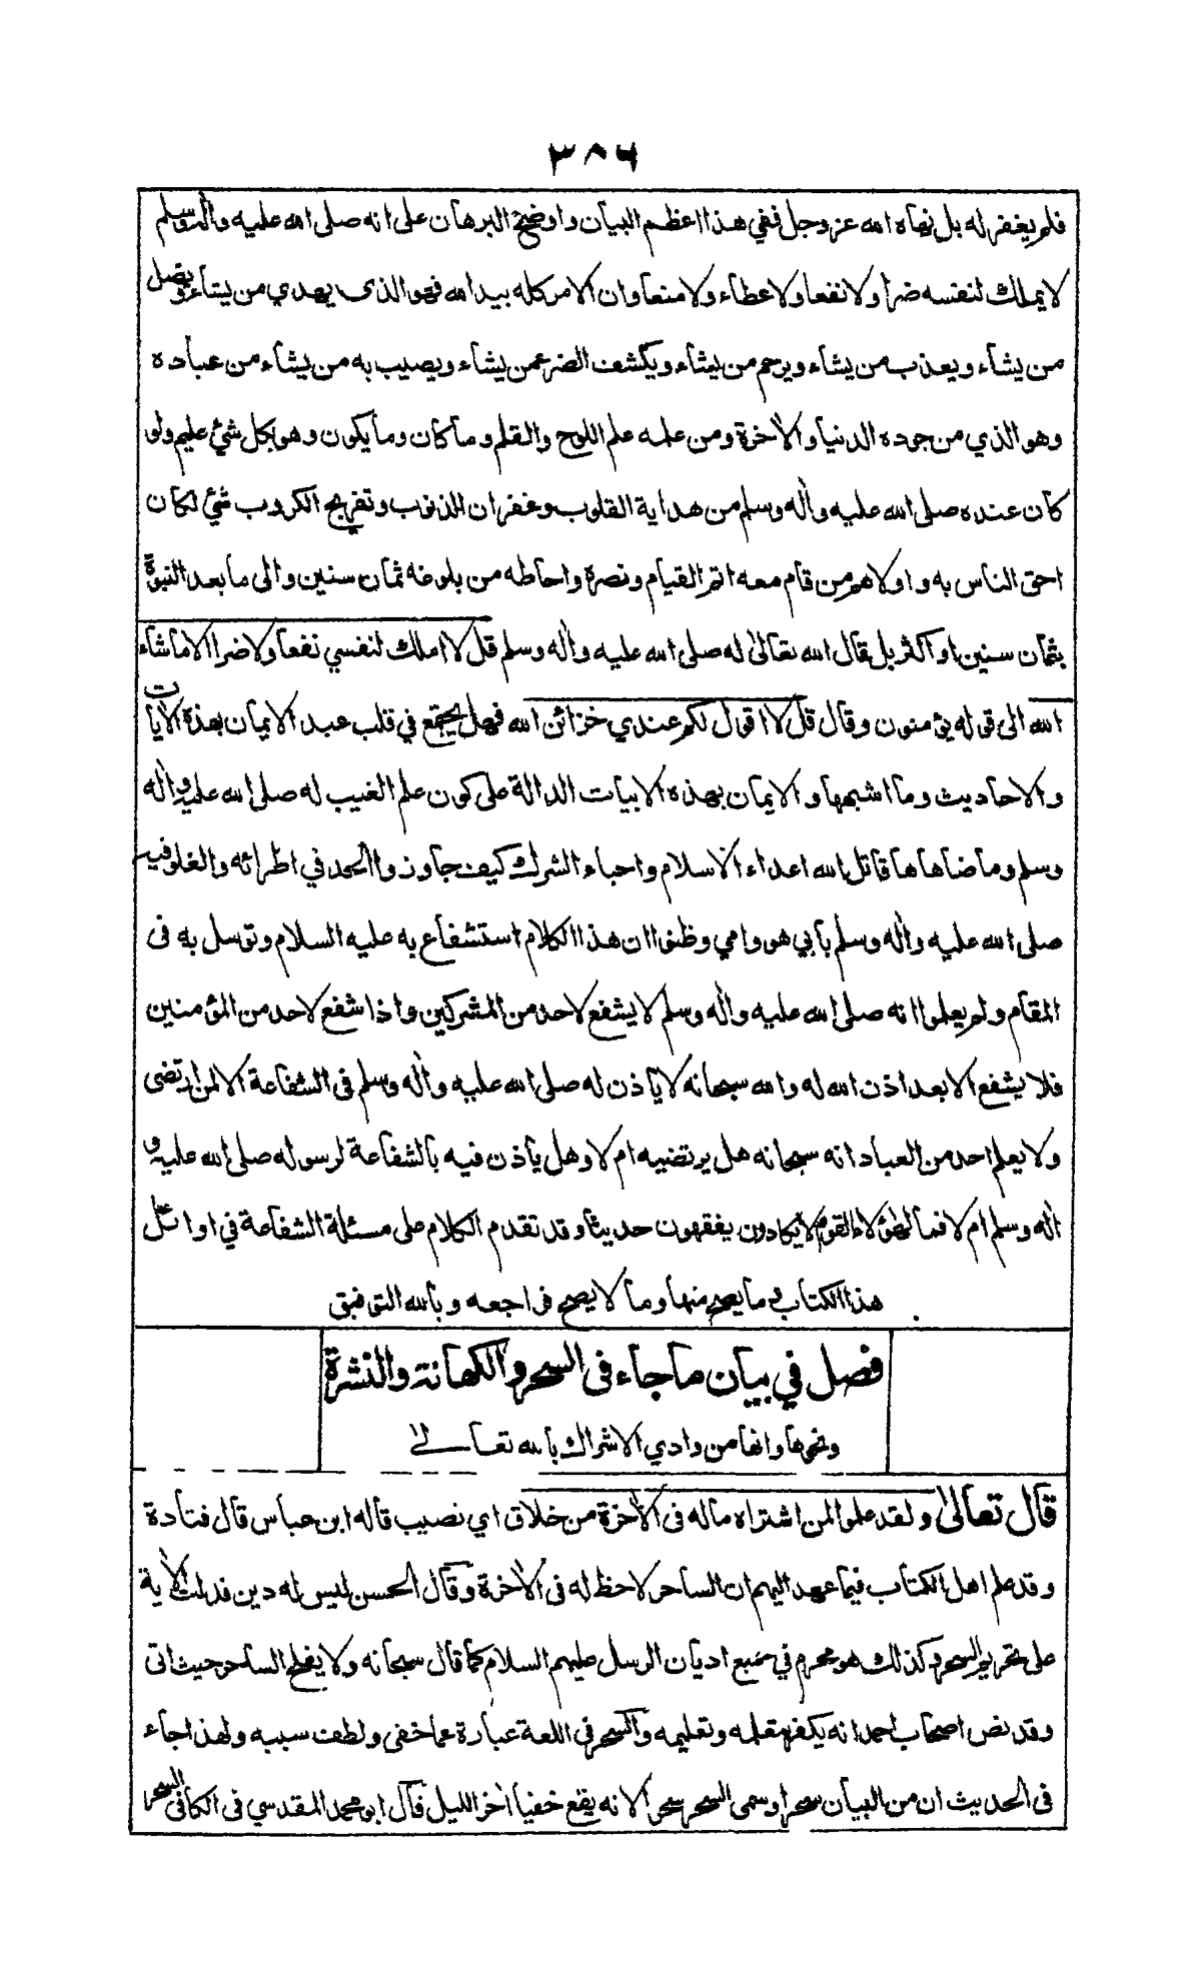 ٣٨٦
فلم يغفر له بل نهاه الله عز وجل ففي هذا اعظم البيان واوضح البرهان على انه صلى الله عليه واله وسلم
لا يملك لنفسه ضرا ولا نفعا ولا عطاء ولا منعا وان الامر كله بيد الله فهو الذى يهدي من يشاء ويضل
من يشاء ويعذب من يشاء ويرحم من يشاء ويكشف الضر عمن يشاء ويصيب به من يشاء من عباده
وهو الذي من جوده الدنيا والاخرة ومن علمه علم اللوح والقلم وما كان وما يكون وهو بكل شئ عليم ولو
كان عنده صلى الله عليه واله وسلم من هداية القلوب وغفران الذنوب وتفريج الكروب شئ لكان
احق الناس به واولاهم من قام معه اتم القيام ونصره واحاطه من بلوغه ثمان سنين والى ما بعد النبوة
بثمان سنين او اكثر بل قال الله تعالىٰ له صلى الله عليه واله وسلم قل لا املك لنفسي نفعا ولا ضرا الا ما شاء
الله الى قوله يؤمنون وقال قل لا اقول لكم عندي خزائن الله فهل يجتمع في قلب عبد الايمان بهذه الايات
والاحاديث وما اشبهها والايمان بهذه الابيات الدالة على كون علم الغيب له صلى الله عليه واله
وسلم وما ضاهاها قاتل الله اعداء الاسلام واحباء الشرك كيف جاوزوا الحد في اطرائه والغلو فيه
صلى الله عليه واله وسلم بابي هو وامي وظنوا ان هذا الكلام استشفاع به عليه السلام وتوسل به فى
المقام ولم يعلموا انه صلى الله عليه واله وسلم لا يشفع لاحد من المشركين واذا شفع لاحد من المؤمنين
فلا يشفع الا بعد اذن الله له والله سبحانه لا ياذن له صلى الله عليه واله وسلم فى الشفاعة الا لمن ارتضى
ولا يعلم احد من العباد انه سبحانه هل يرتضيه ام لا وهل ياذن فيه بالشفاعة لرسوله صلى الله عليه و
اله وسلم ام لا فما لهؤلاء القوم لا يكادون يفقهون حديثا وقد تقدم الكلام على مسئلة الشفاعة في اوائل
هذا الكتاب ما يصح منها وما لا يصح فراجعه وبالله التوفيق
فصل في بيان ما جاء فى السحر والكهانة والنشرة
ونحوها وانها من وادي الاشراك بالله تعالى
قال تعالىٰ ولقد علموا لمن اشتراه ماله فى الاخرة من خلاق اي نصيب قاله ابن عباس قال قتادة
وقد علم اهل الكتاب فيما عهد اليهم ان الساحر لا حظ له فى الاخرة وقال الحسن ليس له دين فدلت الاية
على تحريم السحر وكذلك هو محرم في جميع اديان الرسل عليهم السلام كما قال سبحانه ولا يفلح الساحر حيث اتى
وقد نص اصحاب احمد انه يكفر بتعلمه وتعليمه والسحر فى اللغة عبارة عما خفى ولطف سببه ولهذا جاء
فى الحديث ان من البيان سحرا وسمى السحر سحرا لانه يقع خفيا اخر الليل قال ابو محمد المقدسي فى الكافى السحر